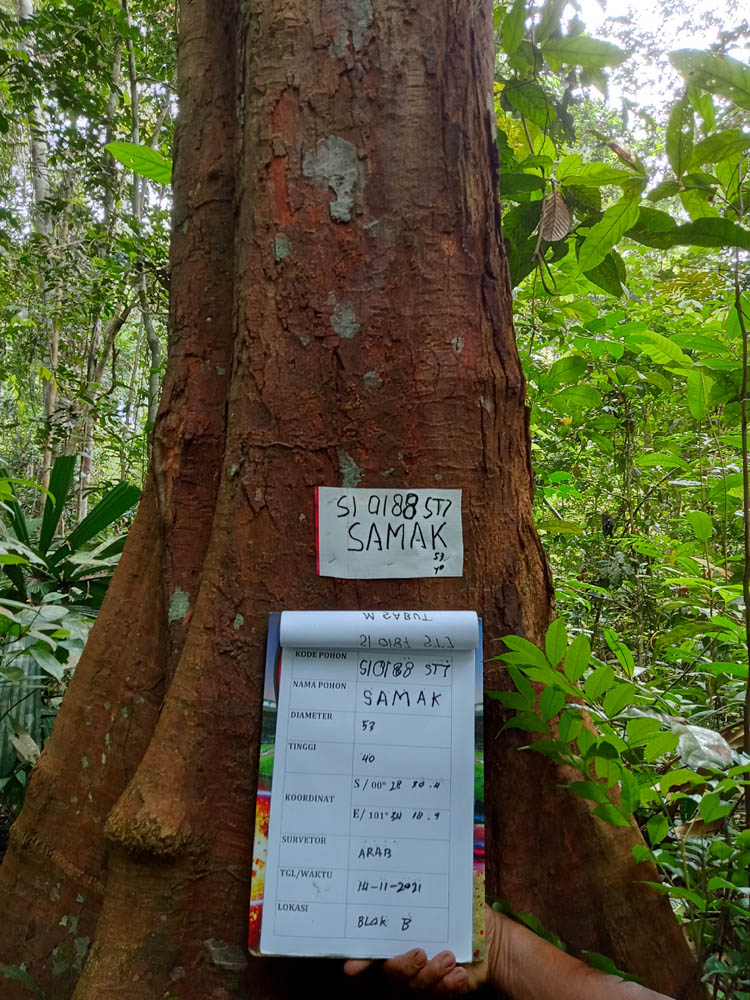 SI 0188 ST7
SAMAK
53
40
KODE POHON SI0188 ST7
NAMA POHON SAMAK
DIAMETER 53
TINGGI 40
KOORDINAT S / 00° 28 30.4
E / 101° 34 18.9
SURVETOR ARAB
TGL/WAKTU 14-11-2021
LOKASI BLOK B